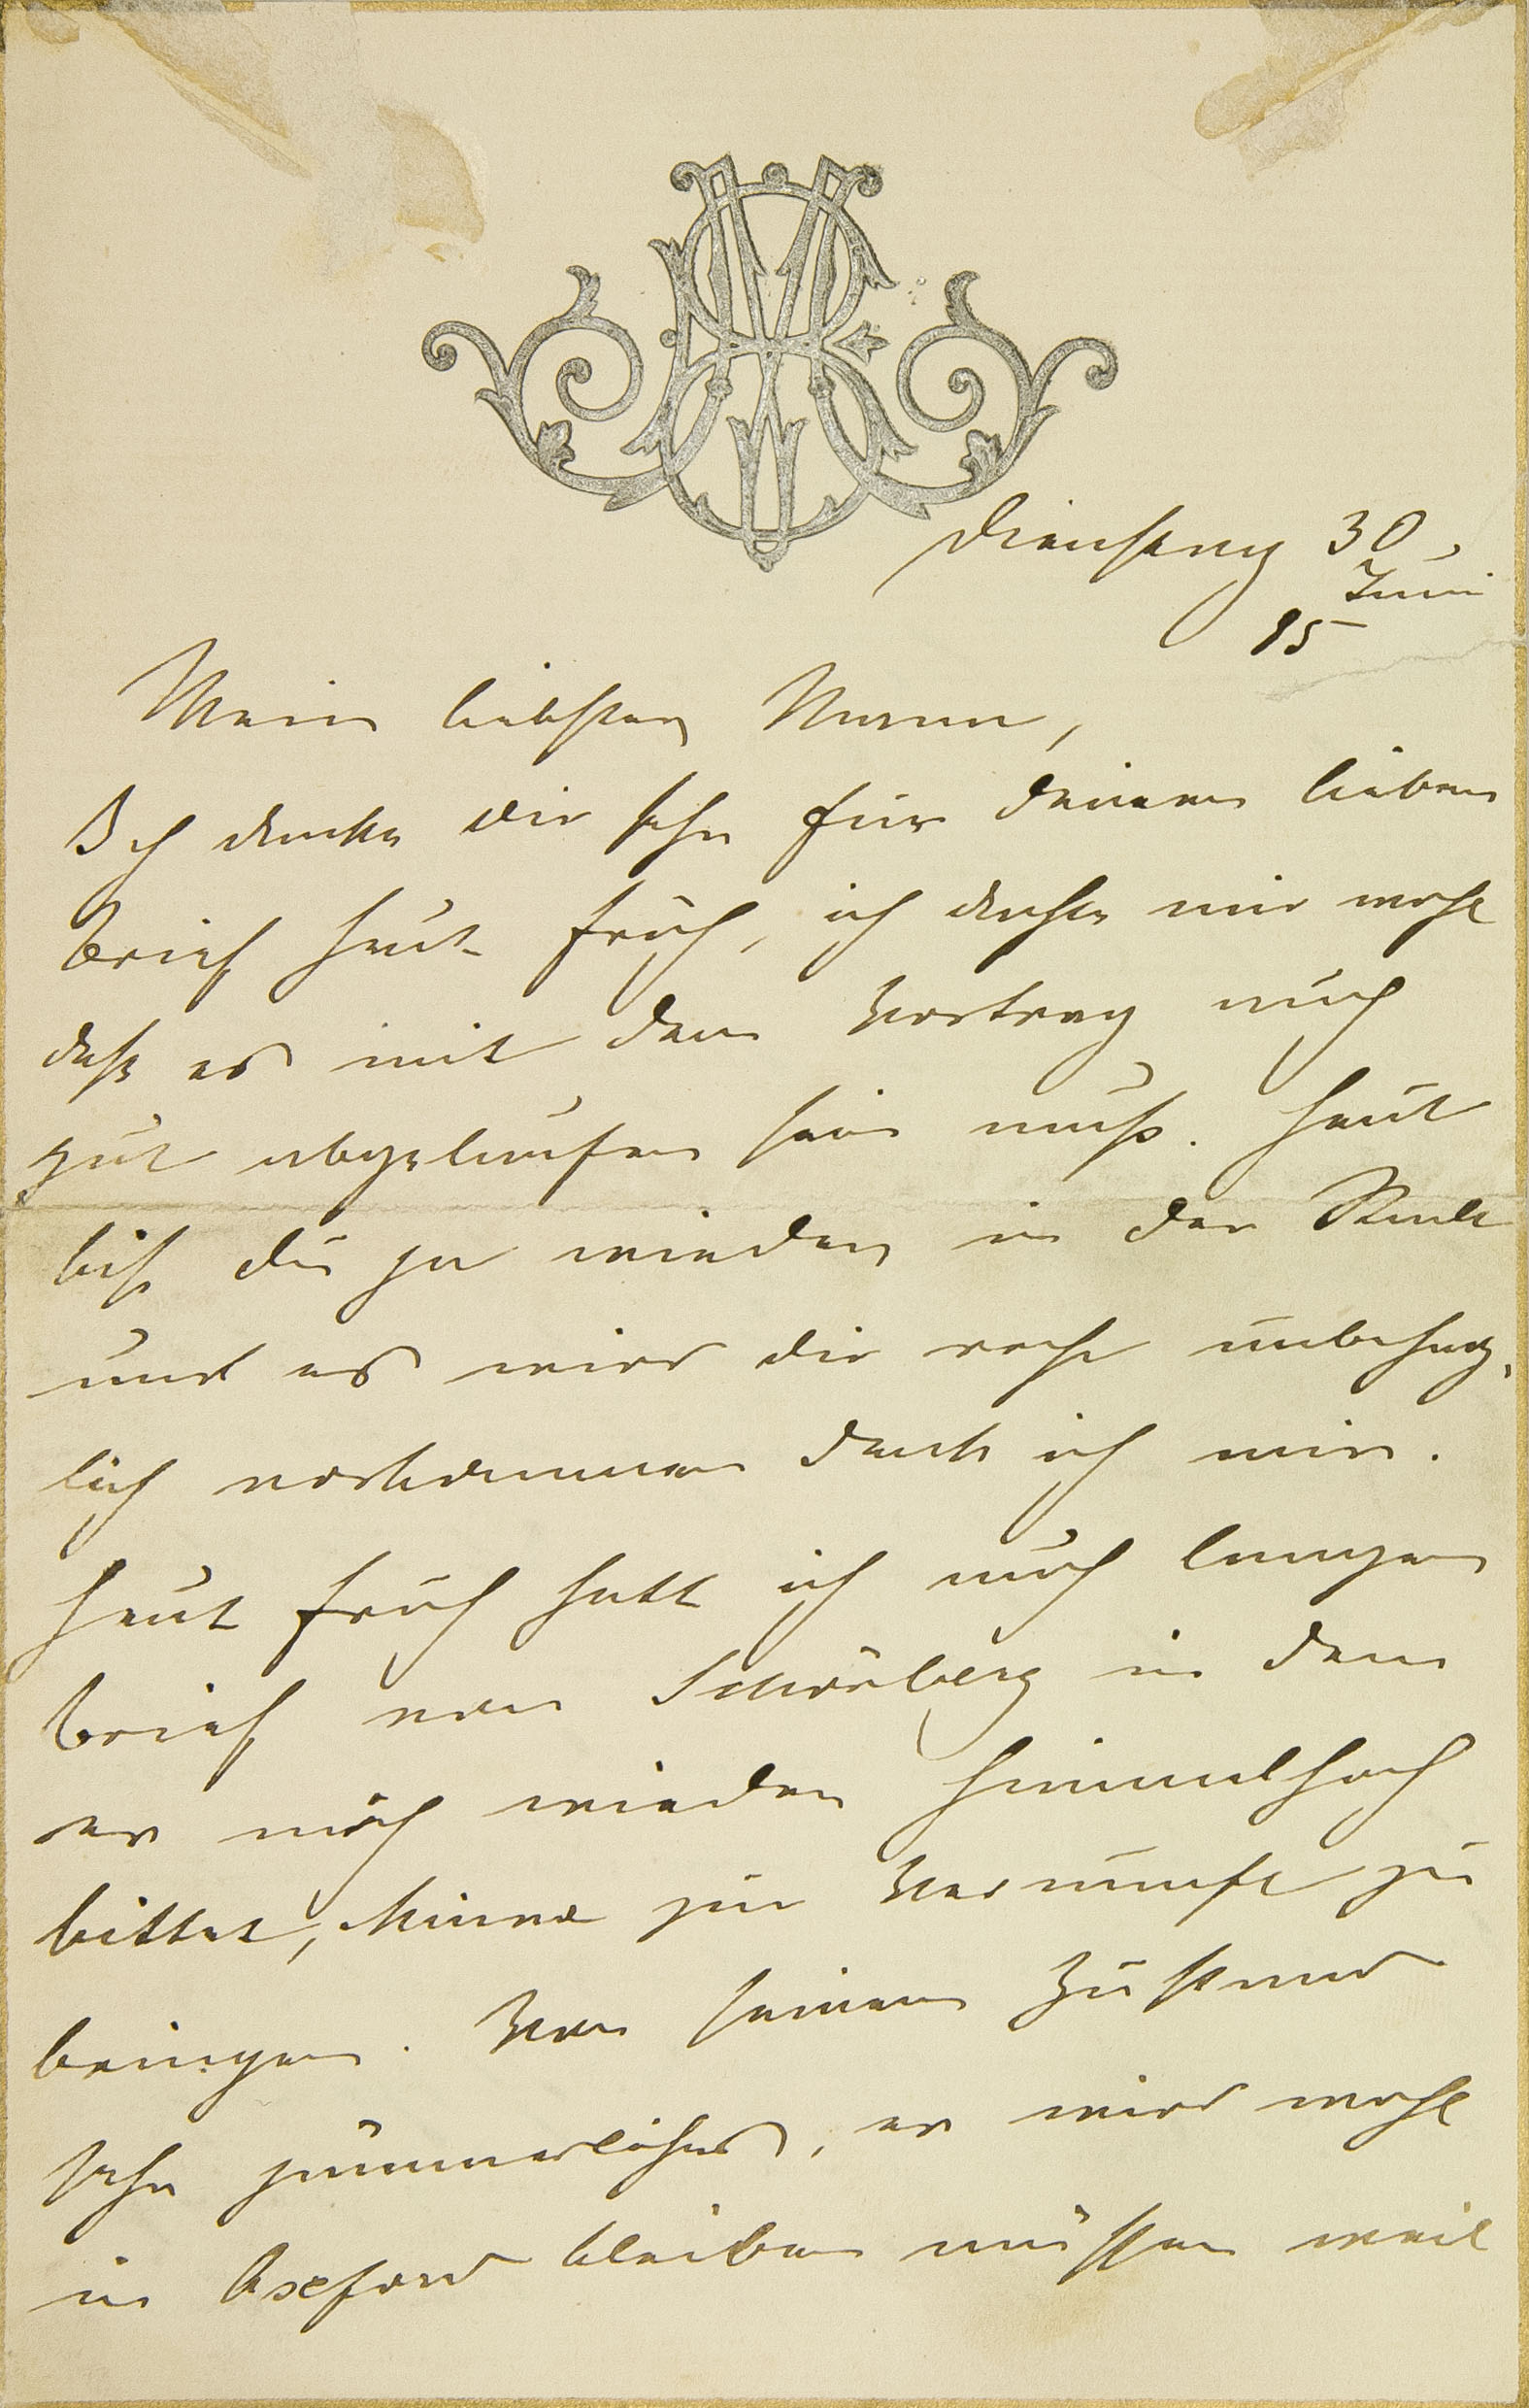 Dienstag 30.
Juni
85
Mein liebster Mann,
Ich danke dir sehr für deinen lieben
Brief heut früh, ich dachte mir wohl
daß es mit dem Vortrag auch
gut abgelaufen sein muß. Heut
bist du ja wieder in der Stadt
und es wird dir recht unbehag-
lich vorkommen denk ich mir.
Heut früh hatt ich auch langen
Brief von Schönberg in dem
er mich wieder himmelhoch
bittet, Minna zur Vernunft zu
bringen. Von seinem Zustand
sehr jämmerliches, er wird wohl
in Oxford bleiben müssen weil